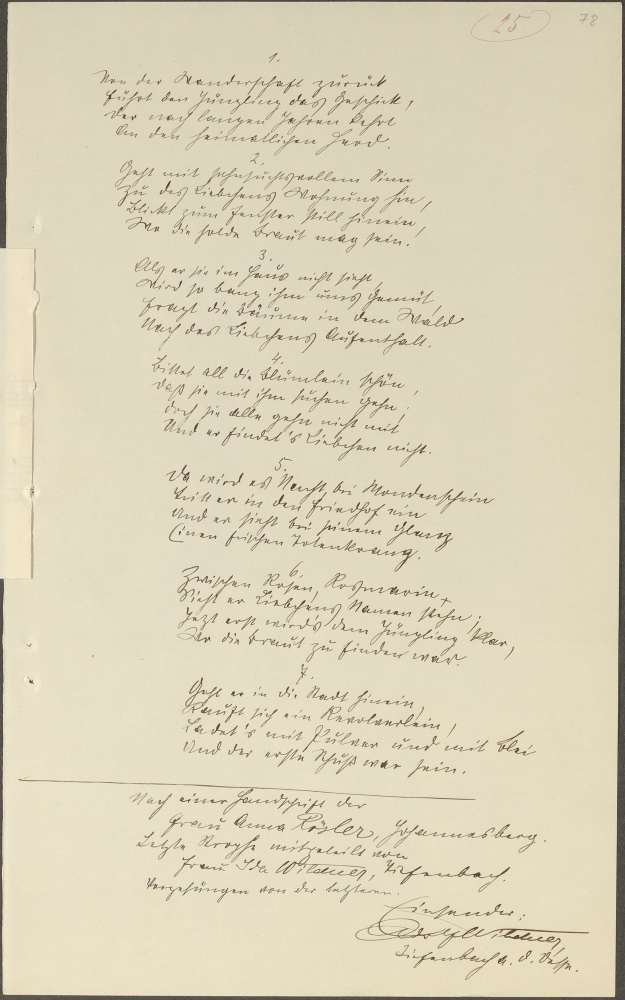 25
78
1.
Von der Wanderschaft zurück
Führt den Jüngling das Geschick,
Der nach langen Jahren kehrt
An den heimatlichen Herd.
2.
Geht mit sehnsuchtsvollem Sinn
Zu des Liebchens Wohnung hin,
Blickt zum Fenster still hinein,
Wo die holde Braut mag sein.
3.
Als er sie im Haus nicht sieht,
Wird so bang ihm ums Gemüt,
Fragt die Bäume in dem Wald
Nach des Liebchens Aufenthalt.
4.
Bittet all die Blümlein schön,
Daß sie mit ihm suchen gehn;
Doch sie alle gehn nicht mit
Und er findet's Liebchen nicht.
5.
Da wird es Nacht, bei Mondenschein
Tritt er in den Friedhof ein
Und er sieht bei seinem Glanz
Einen frischen Totenkranz.
6.
Zwischen Rosen, Rosmarin
Sieht er Liebchens Namen stehn;
Jetzt erst wird's dem Jüngling klar,
Wo die Braut zu finden war.
7.
Geht er in die Stadt hinein,
Kauft sich ein Revolverlein,
Ladet's mit Pulver und mit Blei
Und der erste Schuß war sein.
Nach einer Handschrift der
Frau Anna Rösler, Johannesberg.
Letzte Strophe mitgeteilt von
Frau Ida Wildner, Tiefenbach.
Vorgesungen von der letzteren.
Einsender:
Adolf Wildner,
Tiefenbach a. d. Desse.